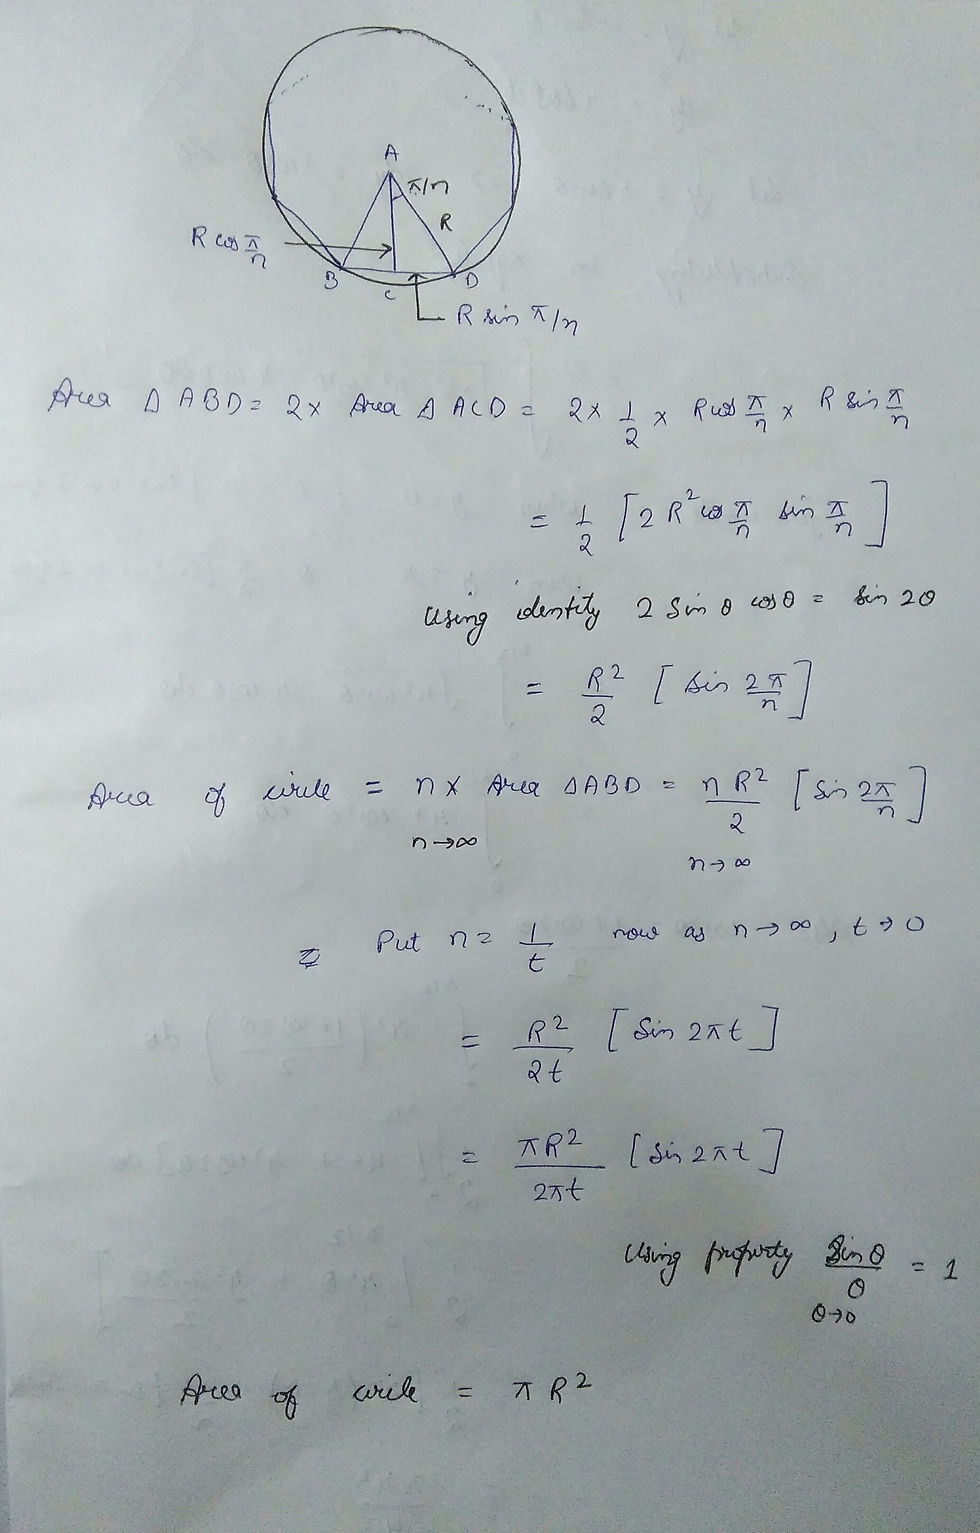 A
π/n
R
R cos π/n
B
C
D
R sin π/n
Area Δ ABD = 2 x Area Δ ACD = 2 x 1/2 x R cos π/n x R sin π/n
= 1/2 [2 R² cos π/n sin π/n]
Using identity 2 Sin θ cos θ = Sin 2θ
= R²/2 [Sin 2π/n]
Area of circle = n x Area ΔABD = n R²/2 [Sin 2π/n]
n→∞ n→∞
Put n = 1/t now as n→∞, t→0
= R²/2t [Sin 2πt]
= πR²/2πt [Sin 2πt]
Using property Sin θ/θ = 1
θ→0
Area of circle = π R²